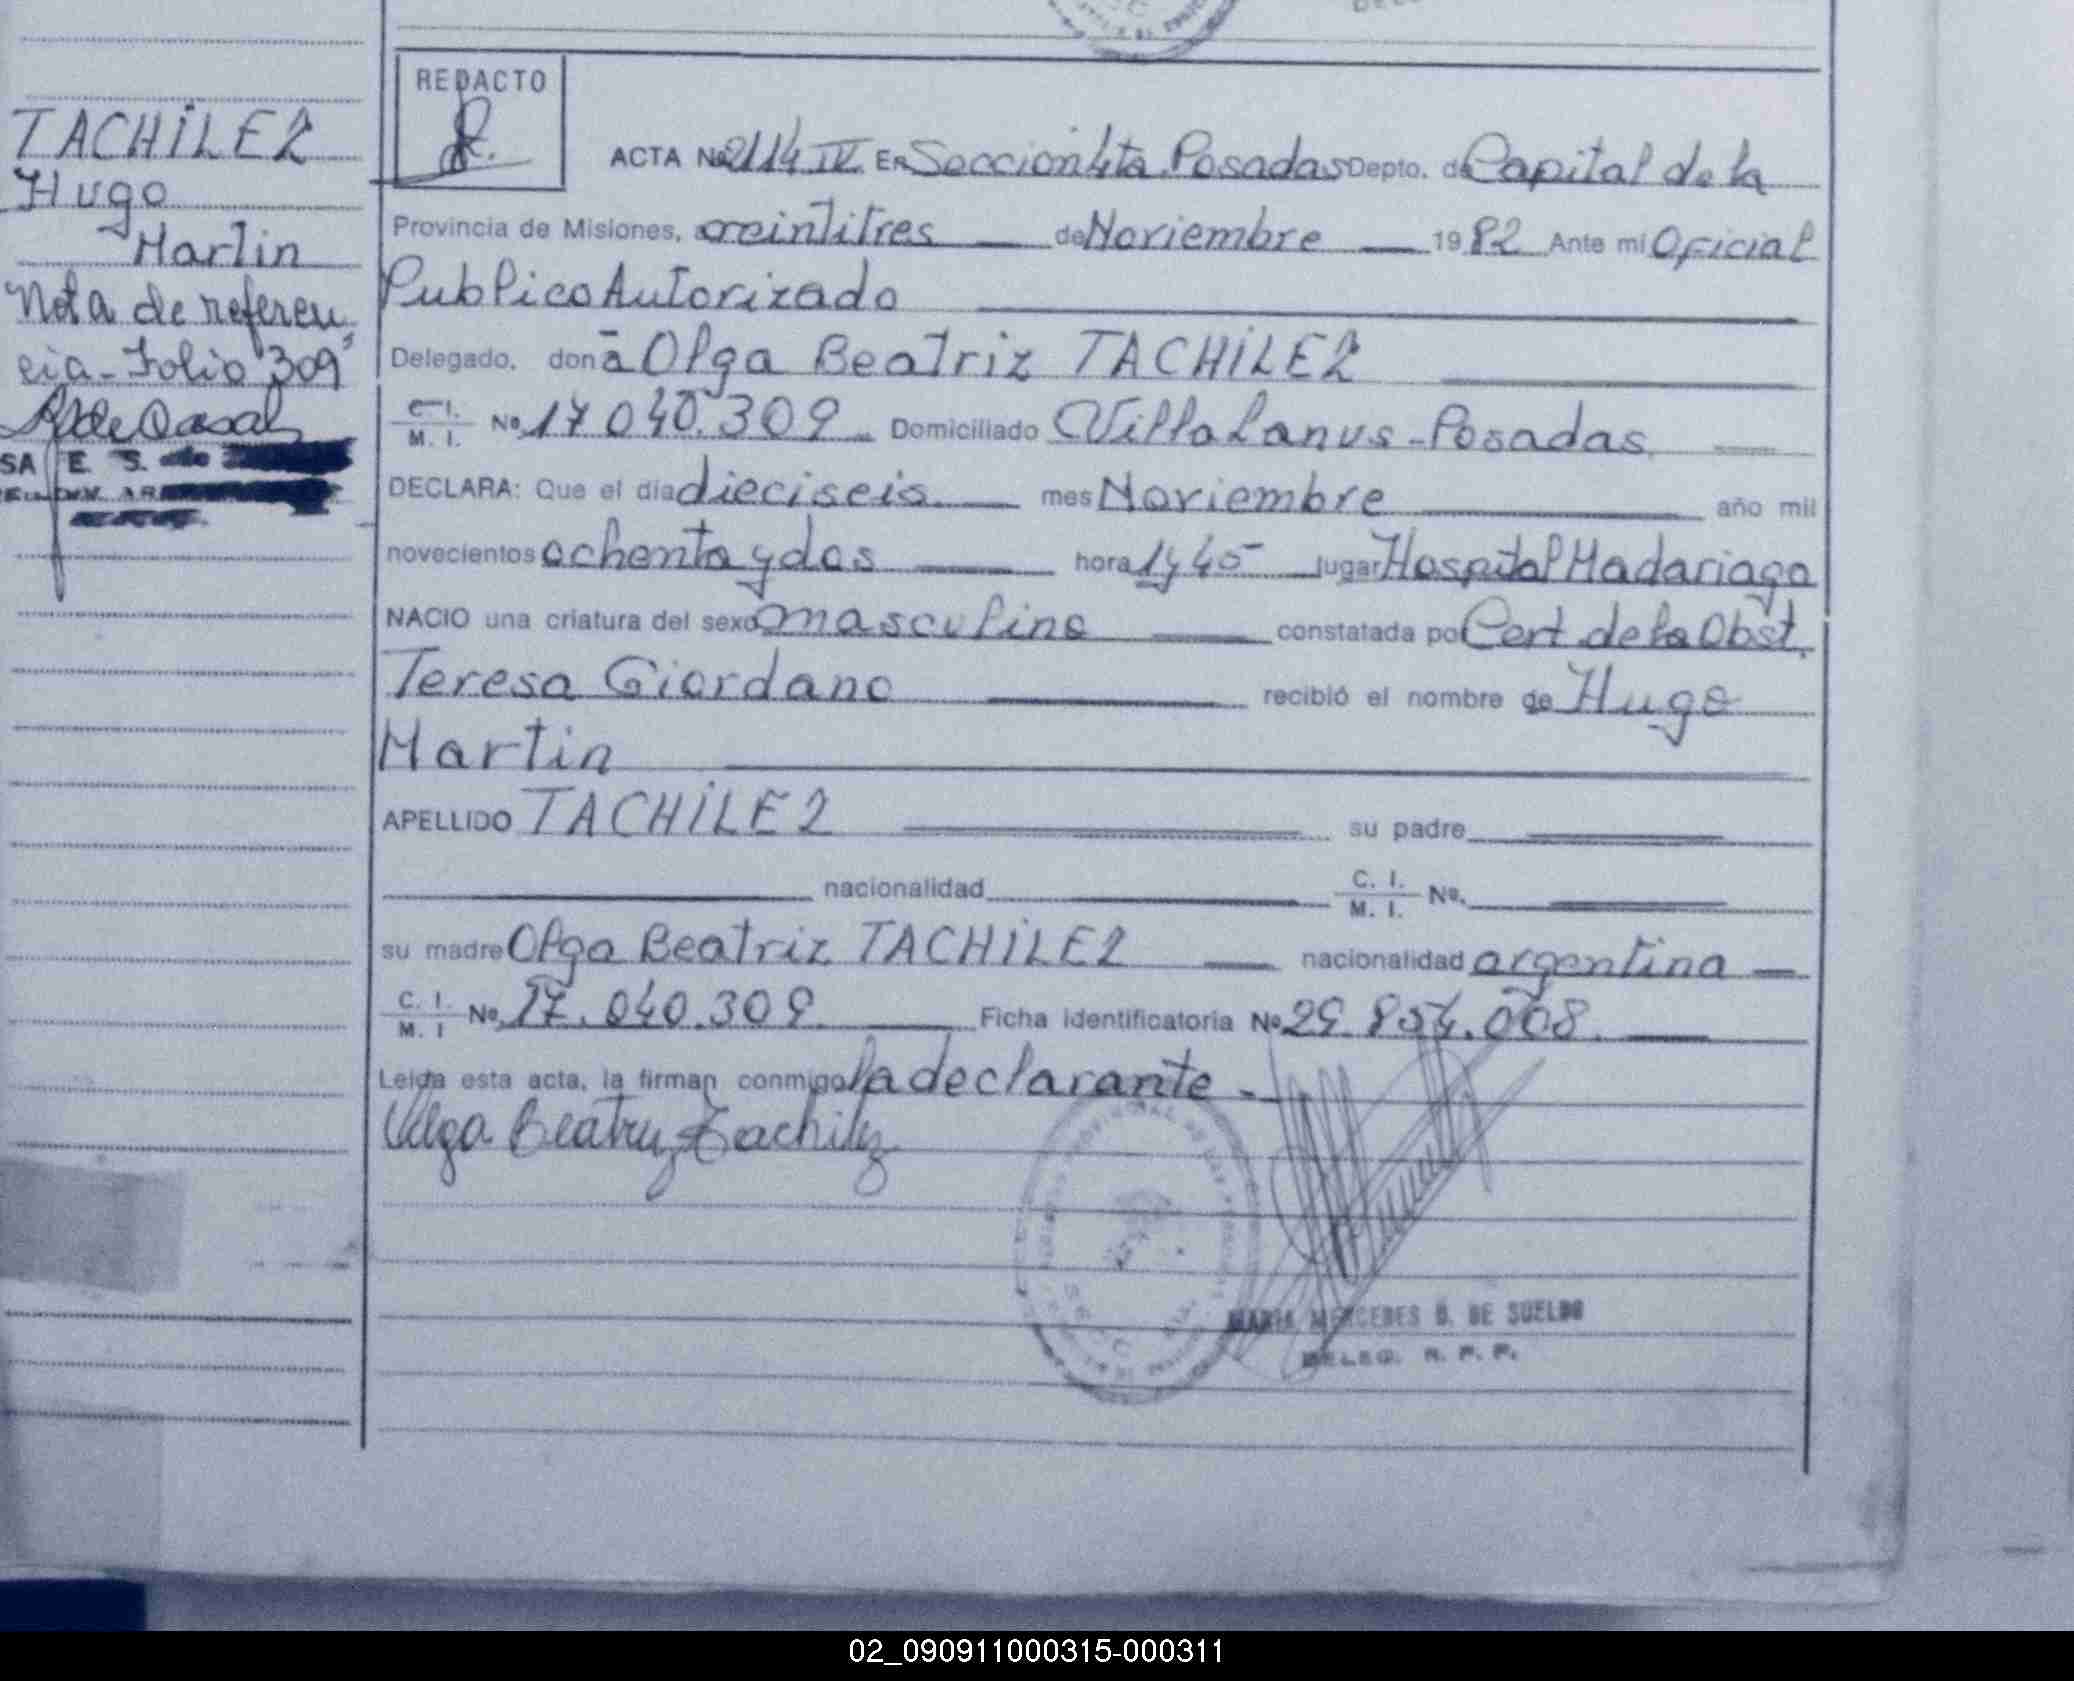 REDACTO
TACHILEZ
Hugo
Martin
Nota de referen
cia - Folio "309"
ACTA No 2114 IV En Seccion 4ta. Posadas Depto. de Capital de la
Provincia de Misiones, a veintitres de Noviembre 1982 Ante mi Oficial
Publico Autorizado
Delegado, donā Olga Beatriz TACHILEZ
C. I. M. I. No 17.040.309 Domiciliado Villa Lanus - Posadas
DECLARA: Que el día dieciseis mes Noviembre año mil
novecientos ochenta y dos hora 17,45 lugar Hospital Madariaga
NACIO una criatura del sexo masculino constatada por Cert. de la Obst.
Teresa Giordano recibió el nombre de Hugo
Martin
APELLIDO TACHILEZ su padre
nacionalidad C. I. M. I. No.
su madre Olga Beatriz TACHILEZ nacionalidad argentina
C. I. M. I No. 17.040.309 Ficha Identificatoria No 29.854.008.
Leída esta acta, la firman conmigo la declarante.-
Olga Beatriz Tachilez
MARIA MERCEDES B. DE SUELDO
DELEG. R. P. P.
02_090911000315-000311